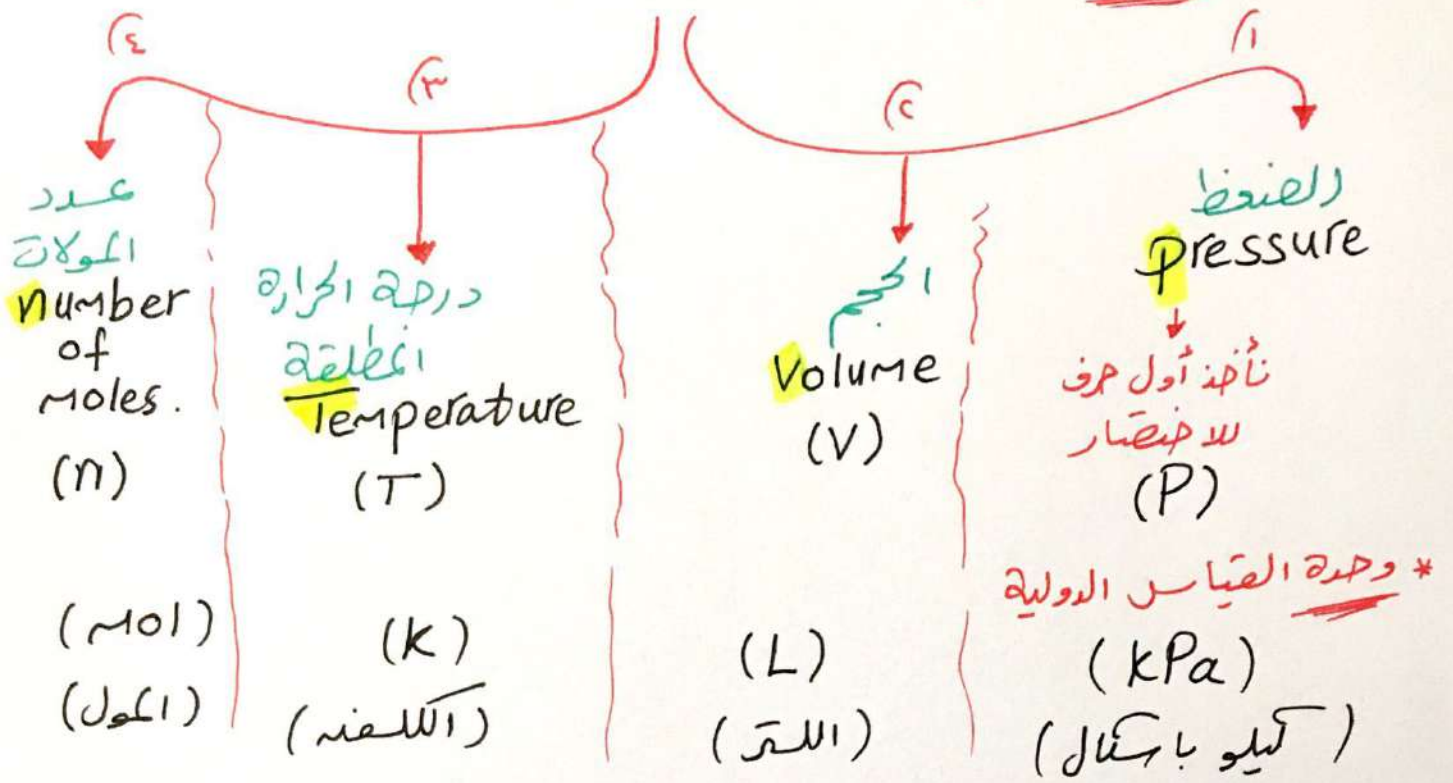 ١)
الضغط
Pressure
نأخذ أول حرف
للاختصار
(P)
* وحدة القياس الدولية
(kPa)
(كيلو باسكال)
٢)
الحجم
Volume
(V)
(L)
(اللتر)
٣)
درجة الحرارة
المطلقة
Temperature
(T)
(K)
(الكلفن)
٤)
عدد
المولات
number
of
moles.
(n)
(mol)
(المول)